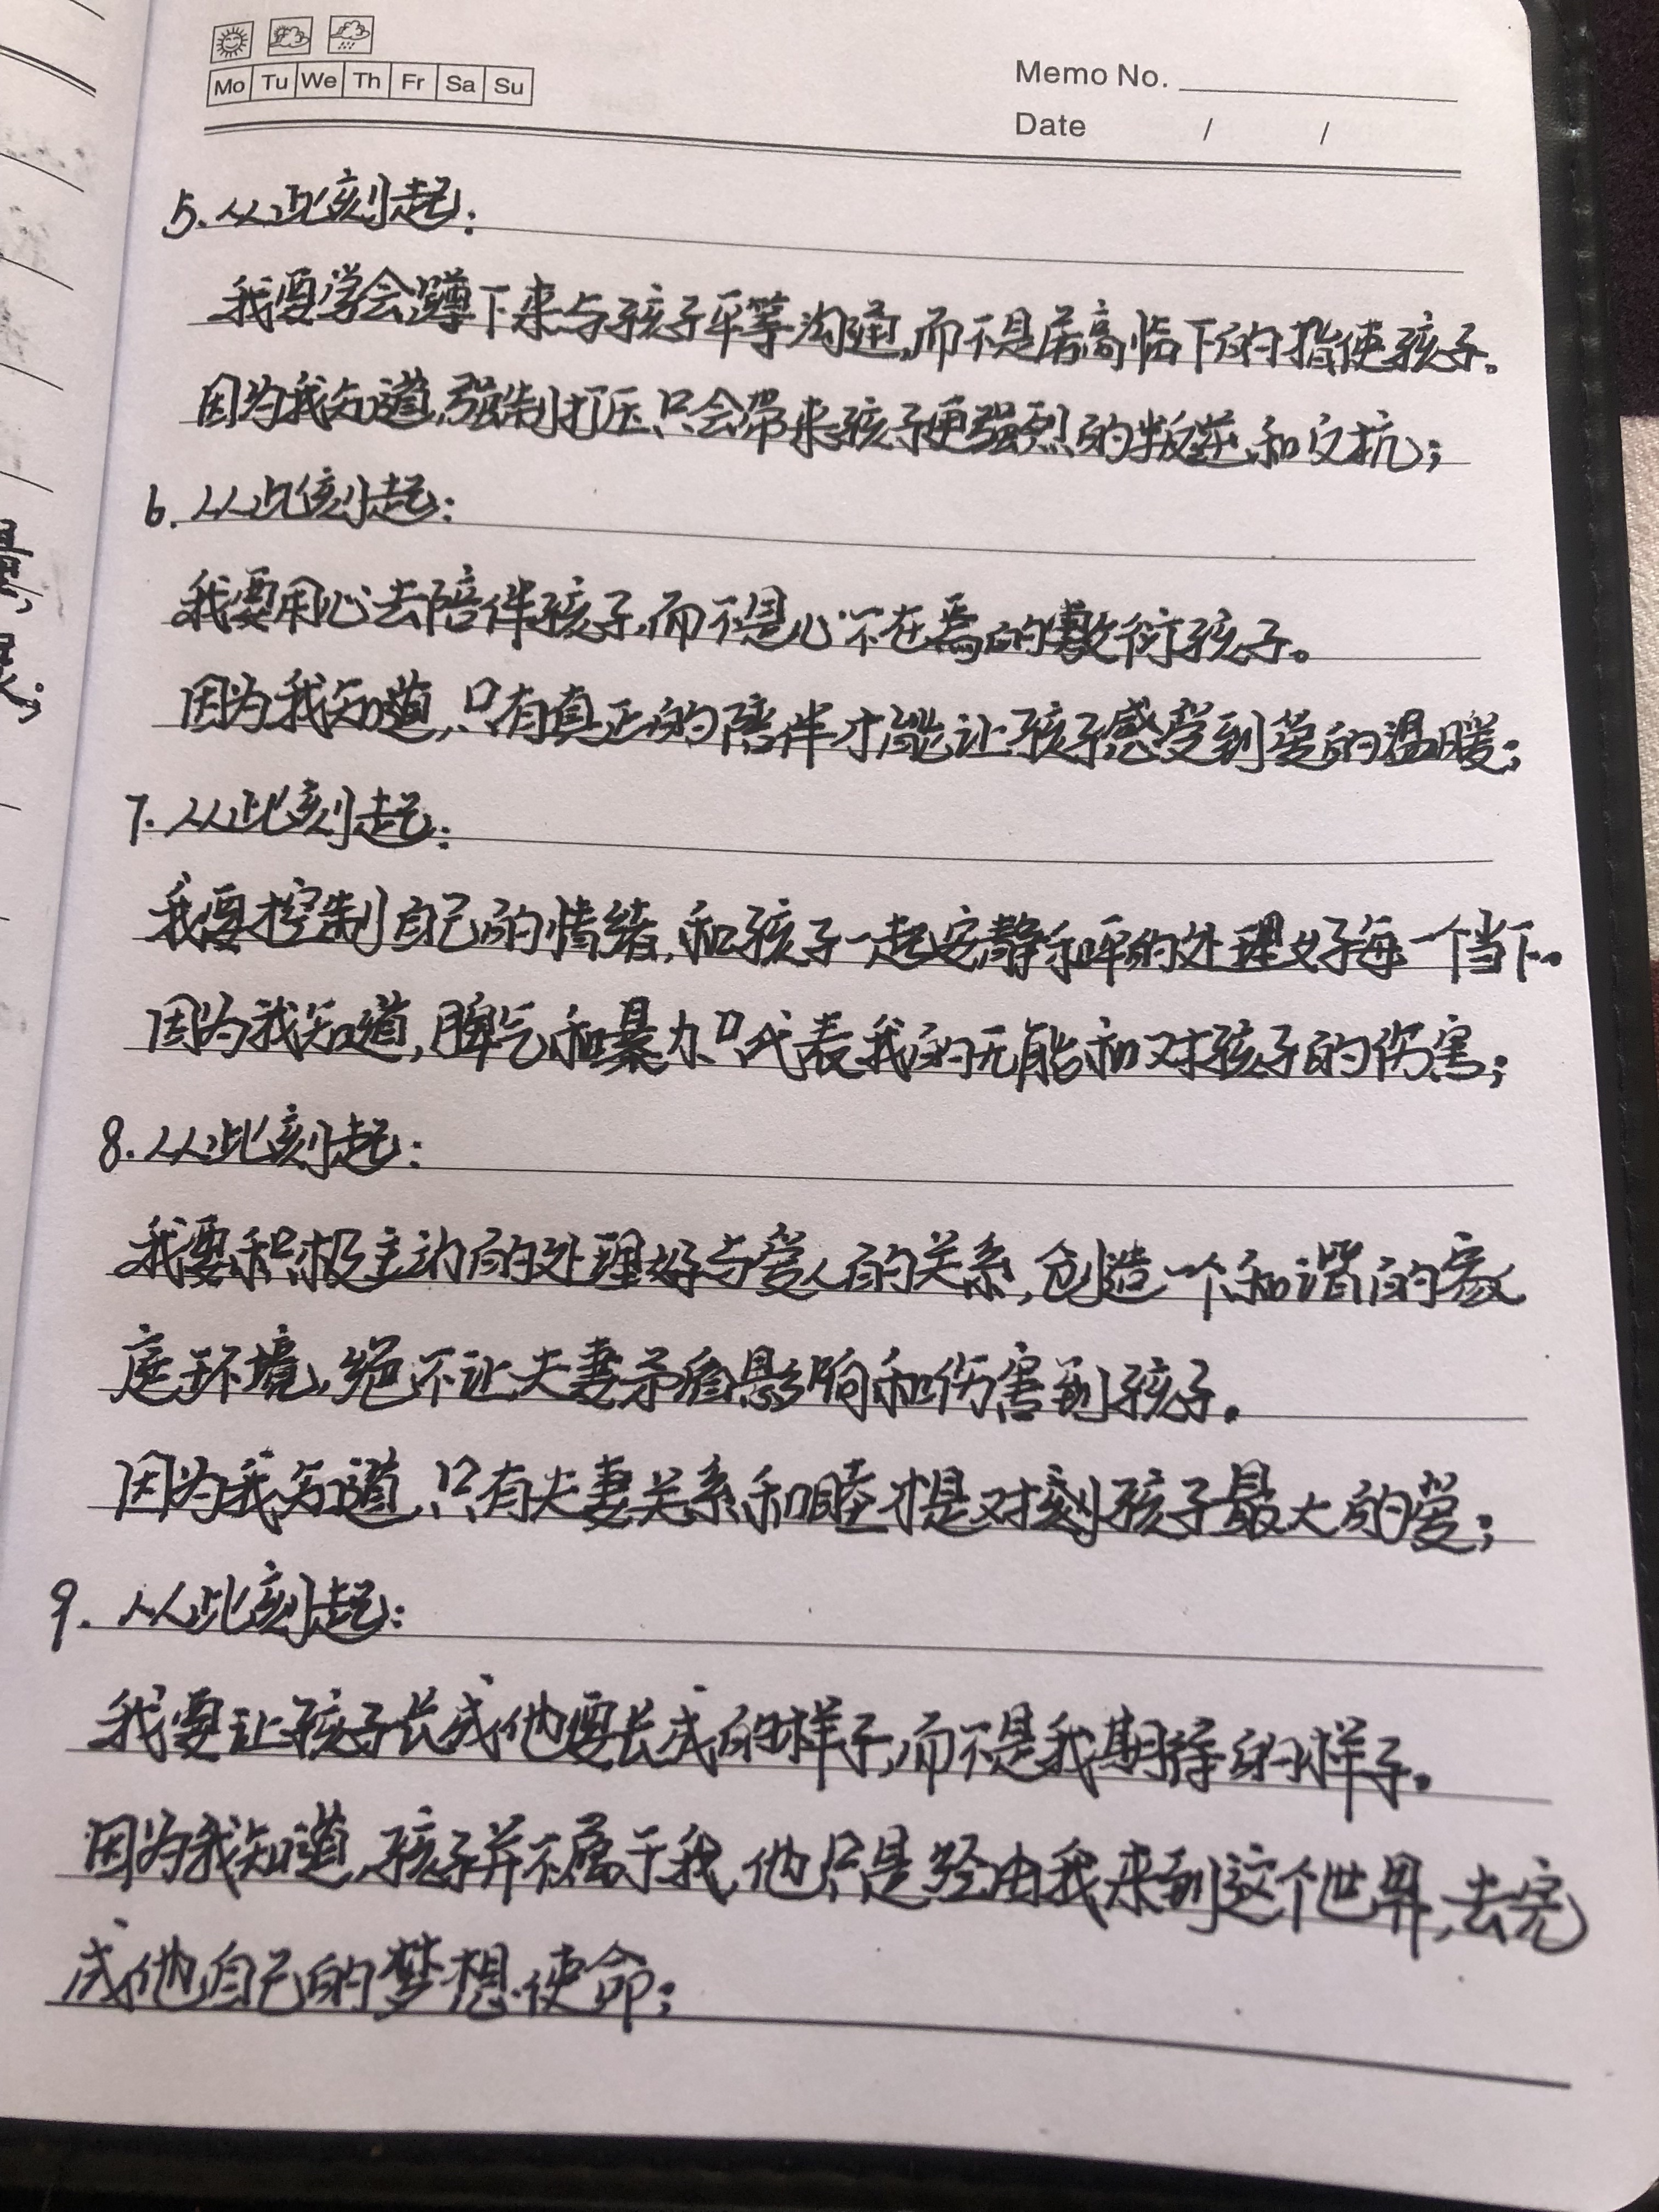 Mo Tu We Th Fr Sa Su
Memo No.
Date / /
5.从此刻起:
我要学会蹲下来与孩子平等沟通,而不是居高临下的指使孩子。
因为我知道,强制打压只会带来孩子更强烈的叛逆和反抗;
6.从此刻起:
我要用心去陪伴孩子,而不是心不在焉的敷衍孩子。
因为我知道,只有真正的陪伴才能让孩子感受到爱的温暖;
7.从此刻起:
我要控制自己的情绪,和孩子一起安静和的处理好每一个当下。
因为我知道,脾气和暴力只代表我的无能和对孩子的伤害;
8.从此刻起:
我要积极主动的处理好与爱人的关系,创造一个和谐的家
庭环境,绝不让夫妻矛盾影响和伤害到孩子.
因为我知道,只有夫妻关系和睦才是对孩子最大的爱;
9.从此刻起:
我要让孩子长成他要长成的样子,而不是我期待的样子.
因为我知道,孩子并不属于我,他只是经由我来到这个世界,去完
成他自己的梦想.使命;